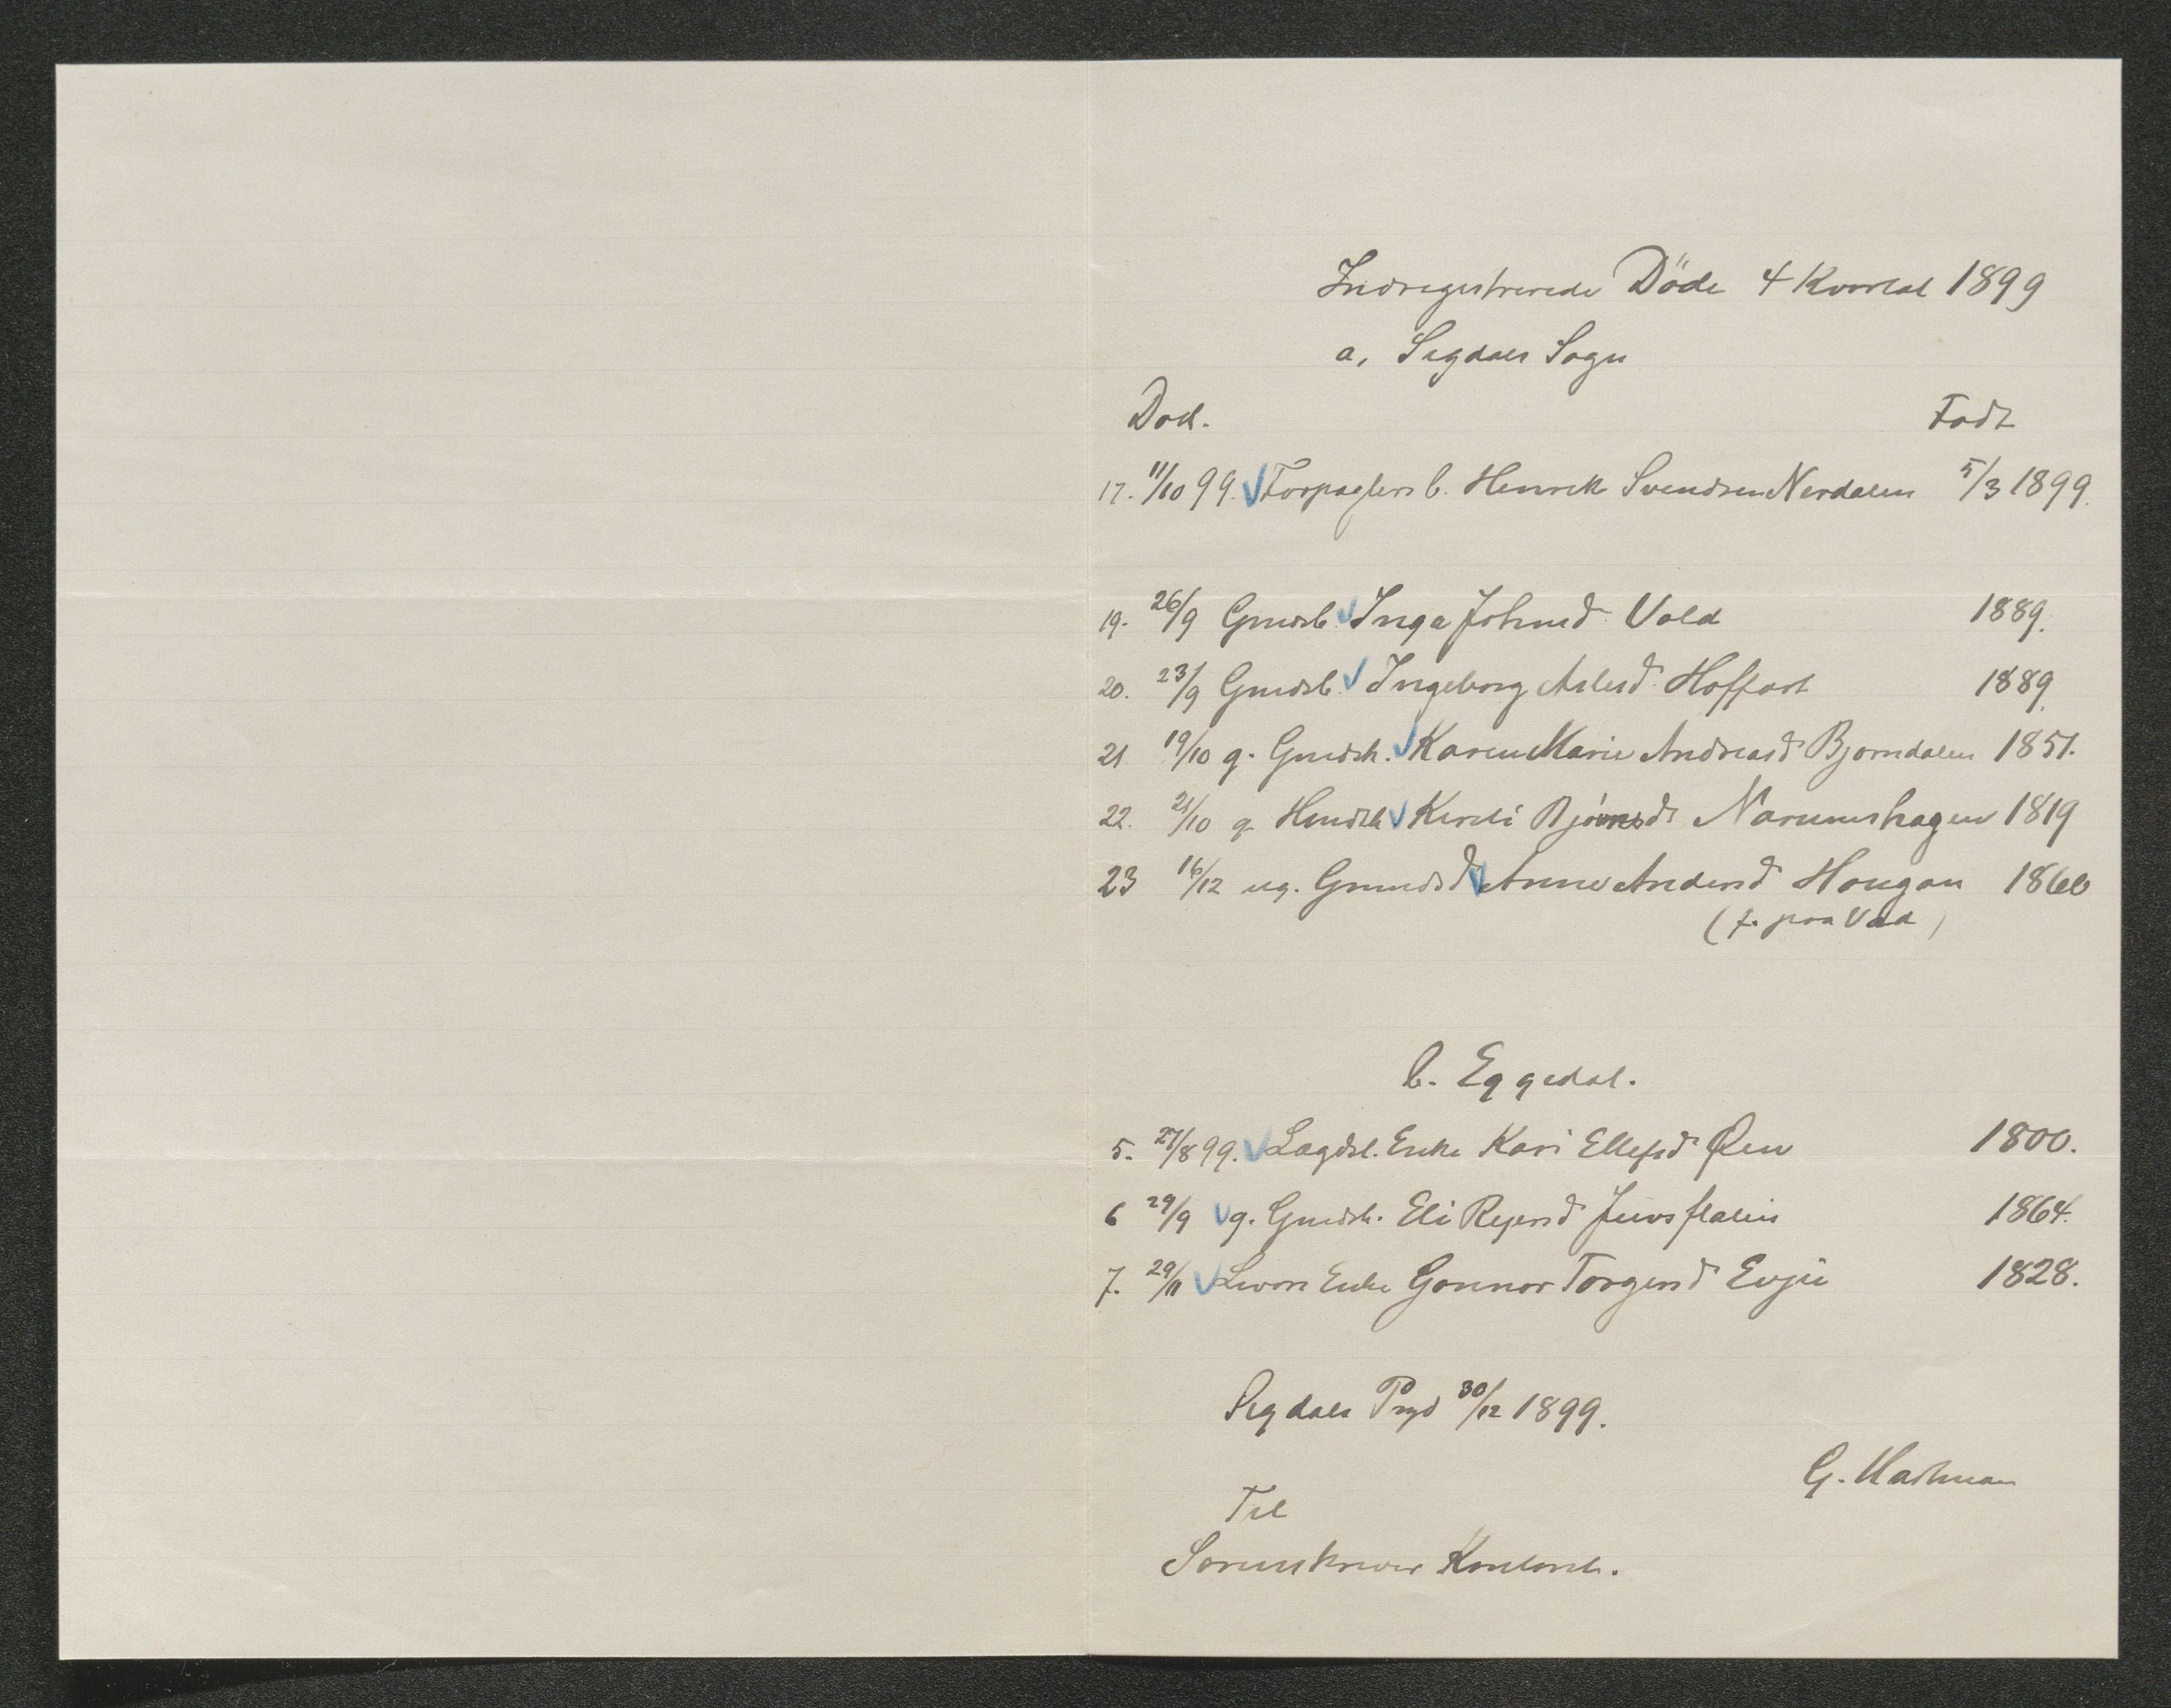 Indregistrerede Döde 4 Kvartal 1899
a, Sigdals Sogn
Dod. Fodt
17. 11/10 99. Forpagters b. Henrik Svendsen Nerdalen 5/3 1899.
19. 26/9 Gmdsb. Inga Johnsd Vold 1889.
20. 23/9 Gmdsb. Ingeborg Aslesd Hoffart 1889.
21 19/10 g. Gmdsk. Karen Marie Andreasd Bjorndalen 1851.
22. 21/10 g Hmdsk Kirsti Bjørnsd Narumshagen 1819
23 16/12 ug. Grmdsd Anne Andersd Hougan 1866
(f. paa Vad)
b. Eggedal.
5. 27/8 99. Lægdsl. Enke Kari Ellefsd Øen 1800.
6 29/9 g. Gmdsk. Eli Reiersd Juvsflaten 1864.
7. 29/11 Enke Gonnor Torgersd Evju 1828.
Sigdals Prgd 30/12 1899.
G.
Til
Sorenskriver Kontoret.